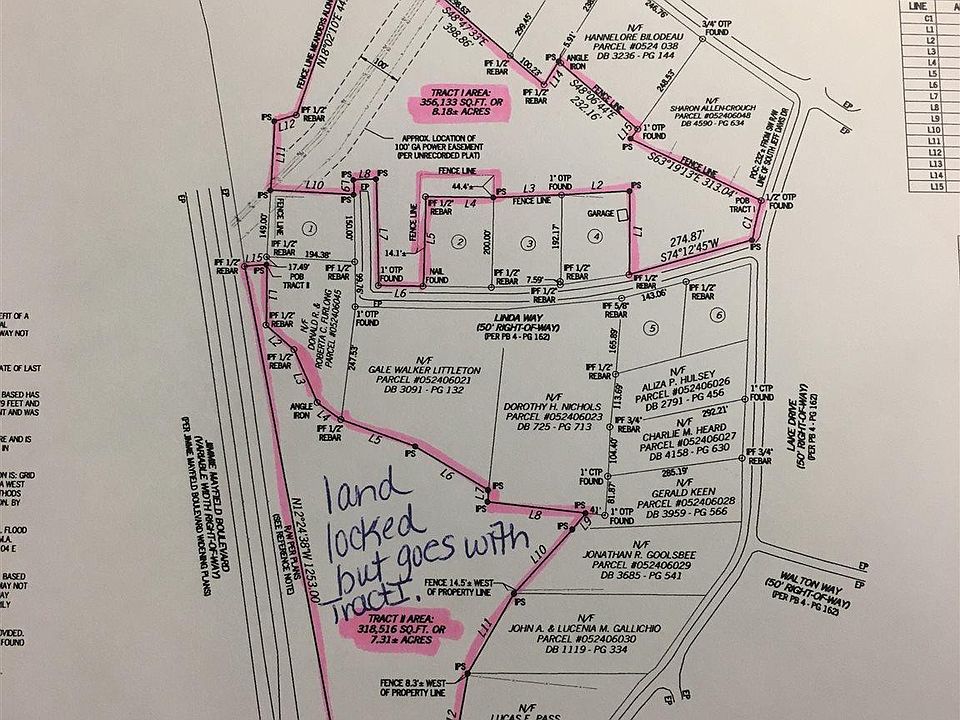 LINE
C1
L1
L2
L3
L4
L5
L6
L7
L8
L9
L10
L11
L12
L13
L14
L15
N18°02'10"E
FENCE LINE MEANDERS ALONG
S48°47'33"E
398.86'
299.45'
100.23'
5.91'
246.76'
N/F
HANNELORE BILODEAU
PARCEL #0524 038
DB 3236 - PG 144
3/4" OTP
FOUND
IPS
ANGLE
IRON
IPF 1/2"
REBAR
L14
100'
TRACT I AREA:
356,133 SQ.FT. OR
8.18± ACRES
S48°06'44"E
232.16'
FENCE LINE
248.53'
N/F
SHARON ALLEN-CROUCH
PARCEL #052406048
DB 4590 - PG 634
EP
EP
POC: 232'± FROM SW R/W
LINE OF SOUTH JEFF DAVIS DR
IPF 1/2"
REBAR
IPS
L12
L11
APPROX. LOCATION OF
100' GA POWER EASEMENT
(PER UNRECORDED PLAT)
L15
1" OTP
FOUND
IPS
S63°19'13"E 313.04'
FENCE LINE
POB
TRACT I
1/2" OTP
FOUND
C1
IPS
FENCE LINE
IPS
L10
IPS
L8
IPS
L9
EP
IPF 1/2"
REBAR
44.4'±
L4
IPS
L3
FENCE LINE
1" OTP
FOUND
L2
IPS
GARAGE
L1
274.87'
S74°12'45"W
EP
EP
149.00'
FENCE LINE
1
150.00'
L7
FENCE LINE
L5
14.1'±
2
200.00'
3
192.17'
4
IPF 1/2"
REBAR
194.38'
IPF 1/2"
REBAR
1" OTP
FOUND
NAIL
FOUND
L6
IPF 1/2"
REBAR
7.59'
IPF 1/2"
REBAR
IPF 1/2"
REBAR
IPF 1/2"
REBAR
L15
IPS
17.49'
POB
TRACT II
99.76'
EP
1" OTP
FOUND
LINDA WAY
(50' RIGHT-OF-WAY)
(PER PB 4 - PG 162)
IPF 5/8"
REBAR
143.06'
IPF 1/2"
REBAR
5
6
L1
IPF 1/2"
REBAR
L2
N/F
DONALD R. &
ROBERTA C. FURLONG
PARCEL #052406045
247.53'
N/F
GALE WALKER LITTLETON
PARCEL #052406021
DB 3091 - PG 132
165.89'
IPF 1/2"
REBAR
IPF 1/2"
REBAR
L3
N/F
DOROTHY H. NICHOLS
PARCEL #052406023
DB 725 - PG 713
113.69'
N/F
ALIZA P. HULSEY
PARCEL #052406026
DB 2791 - PG 456
1" CTP
FOUND
ANGLE
IRON
L4
IPF 1/2"
REBAR
L5
292.21'
IPF 3/4"
REBAR
N/F
CHARLIE M. HEARD
PARCEL #052406027
DB 4158 - PG 630
LAKE DRIVE
(50' RIGHT-OF-WAY)
(PER PB 4 - PG 162)
IPS
L6
104.40'
IPF 3/4"
REBAR
285.19'
1" CTP
FOUND
81.87'
N/F
GERALD KEEN
PARCEL #052406028
DB 3959 - PG 566
IPS
L7
L8
IPS
41'
1" OTP
FOUND
L9
IPS
land
locked
but goes with
Tract I.
L10
JIMMIE MAYFIELD BOULEVARD
(VARIABLE WIDTH RIGHT-OF-WAY)
(PER JIMMIE MAYFIELD BOULEVARD WIDENING PLANS)
N12°24'38"W 1253.00'
R/W PER PLANS
(SEE REFERENCE NOTE)
N/F
JONATHAN R. GOOLSBEE
PARCEL #052406029
DB 3685 - PG 541
WALTON WAY
(50' RIGHT-OF-WAY)
(PER PB 4 - PG 162)
EP
EP
FENCE 14.5'± WEST
OF PROPERTY LINE
IPS
TRACT II AREA:
318,516 SQ.FT. OR
7.31± ACRES
L11
N/F
JOHN A. & LUCENIA M. GALLICHIO
PARCEL #052406030
DB 1119 - PG 334
FENCE 8.3'± WEST
OF PROPERTY LINE
IPS
EP
EP
N/F
LUCAS E. PASS